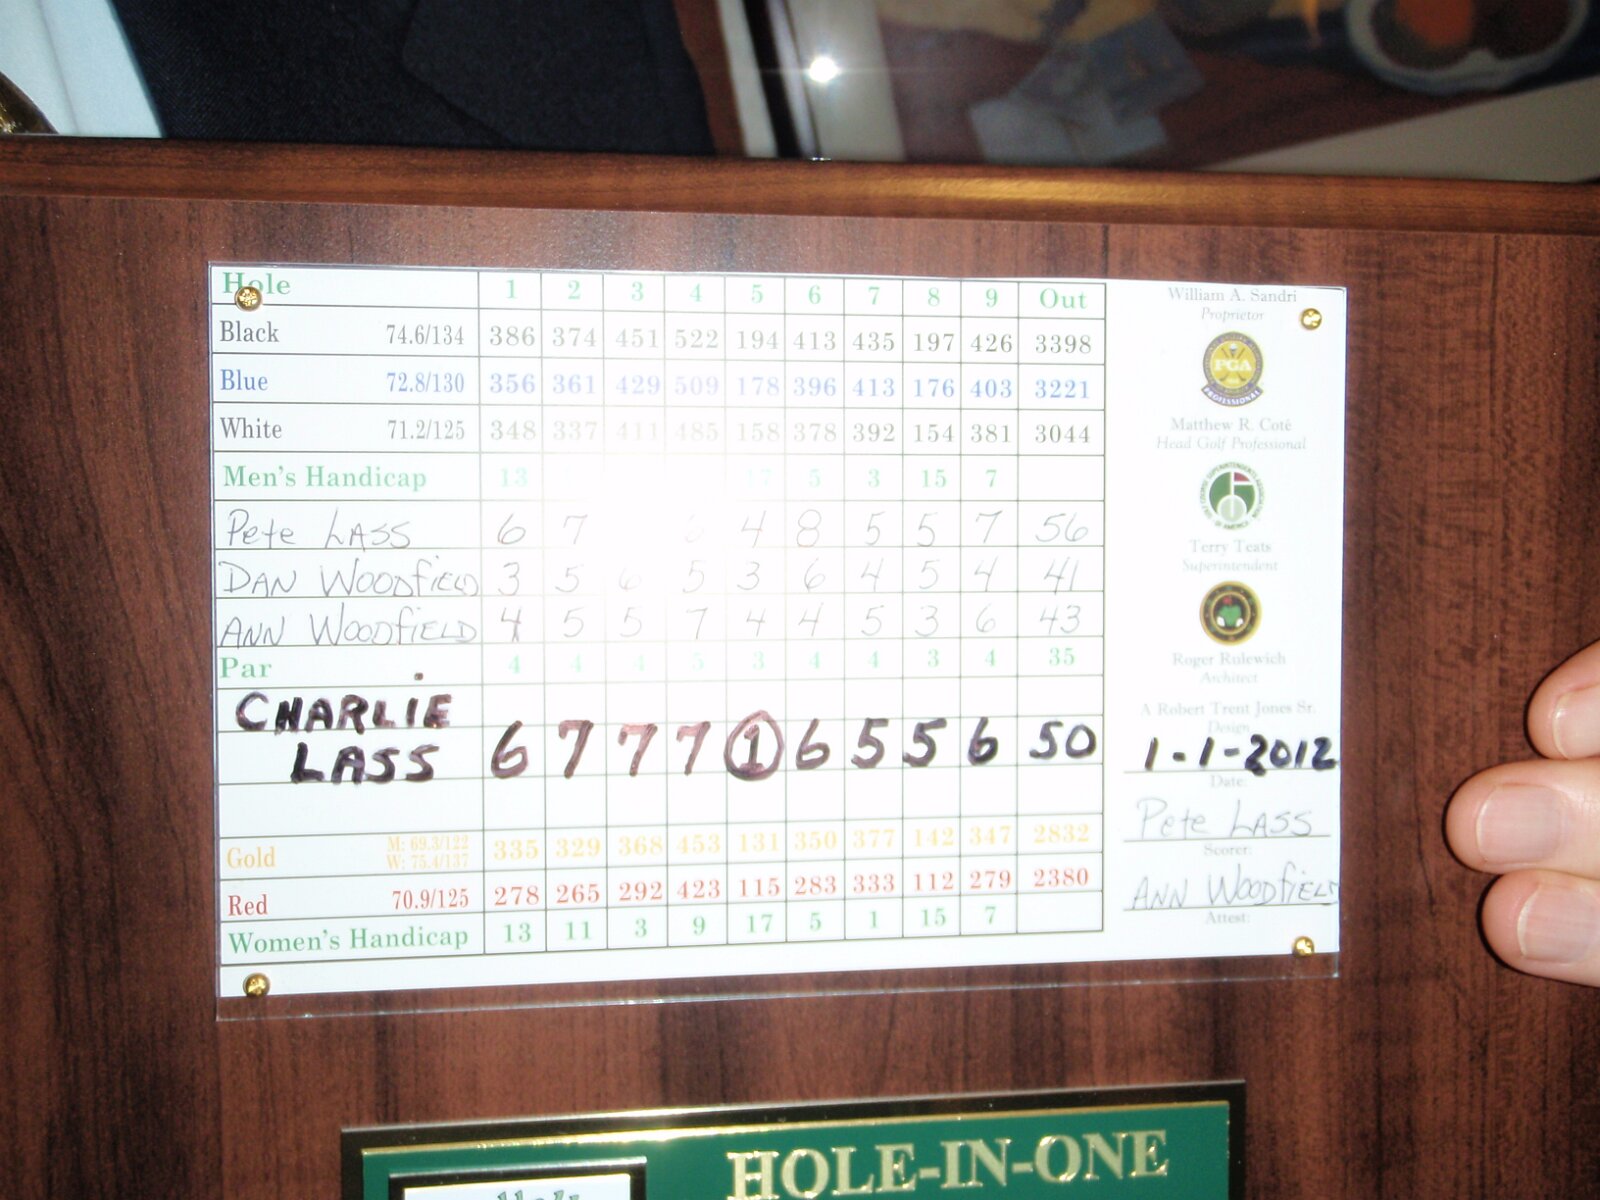 Hole 1 2 3 4 5 6 7 8 9 Out
Black 74.6/134 386 374 451 522 194 413 435 197 426 3398
Blue 72.8/130 356 361 429 509 178 396 413 176 403 3221
White 71.2/125 348 337 411 485 158 378 392 154 381 3044
Men's Handicap 13 17 5 3 15 7
Pete LASS 6 7 6 4 8 5 5 7 56
DAN WOODfiELD 3 5 6 5 3 6 4 5 4 41
ANN WOODfiELD 4 5 5 7 4 4 5 3 6 43
Par 4 4 4 5 3 4 4 3 4 35
CHARLIE
LASS 6 7 7 7 1 6 5 5 6 50
Gold M: 69.3/122 W: 75.4/137 335 329 368 453 131 350 377 142 347 2832
Red 70.9/125 278 265 292 423 115 283 333 112 279 2380
Women's Handicap 13 11 3 9 17 5 1 15 7
William A. Sandri
Proprietor
PGA
PROFESSIONAL
Matthew R. Coté
Head Golf Professional
Terry Teats
Superintendent
Roger Rulewich
Architect
A Robert Trent Jones Sr.
Design
1-1-2012
Date:
Pete LASS
Scorer:
ANN WOODfiELD
Attest:
HOLE-IN-ONE